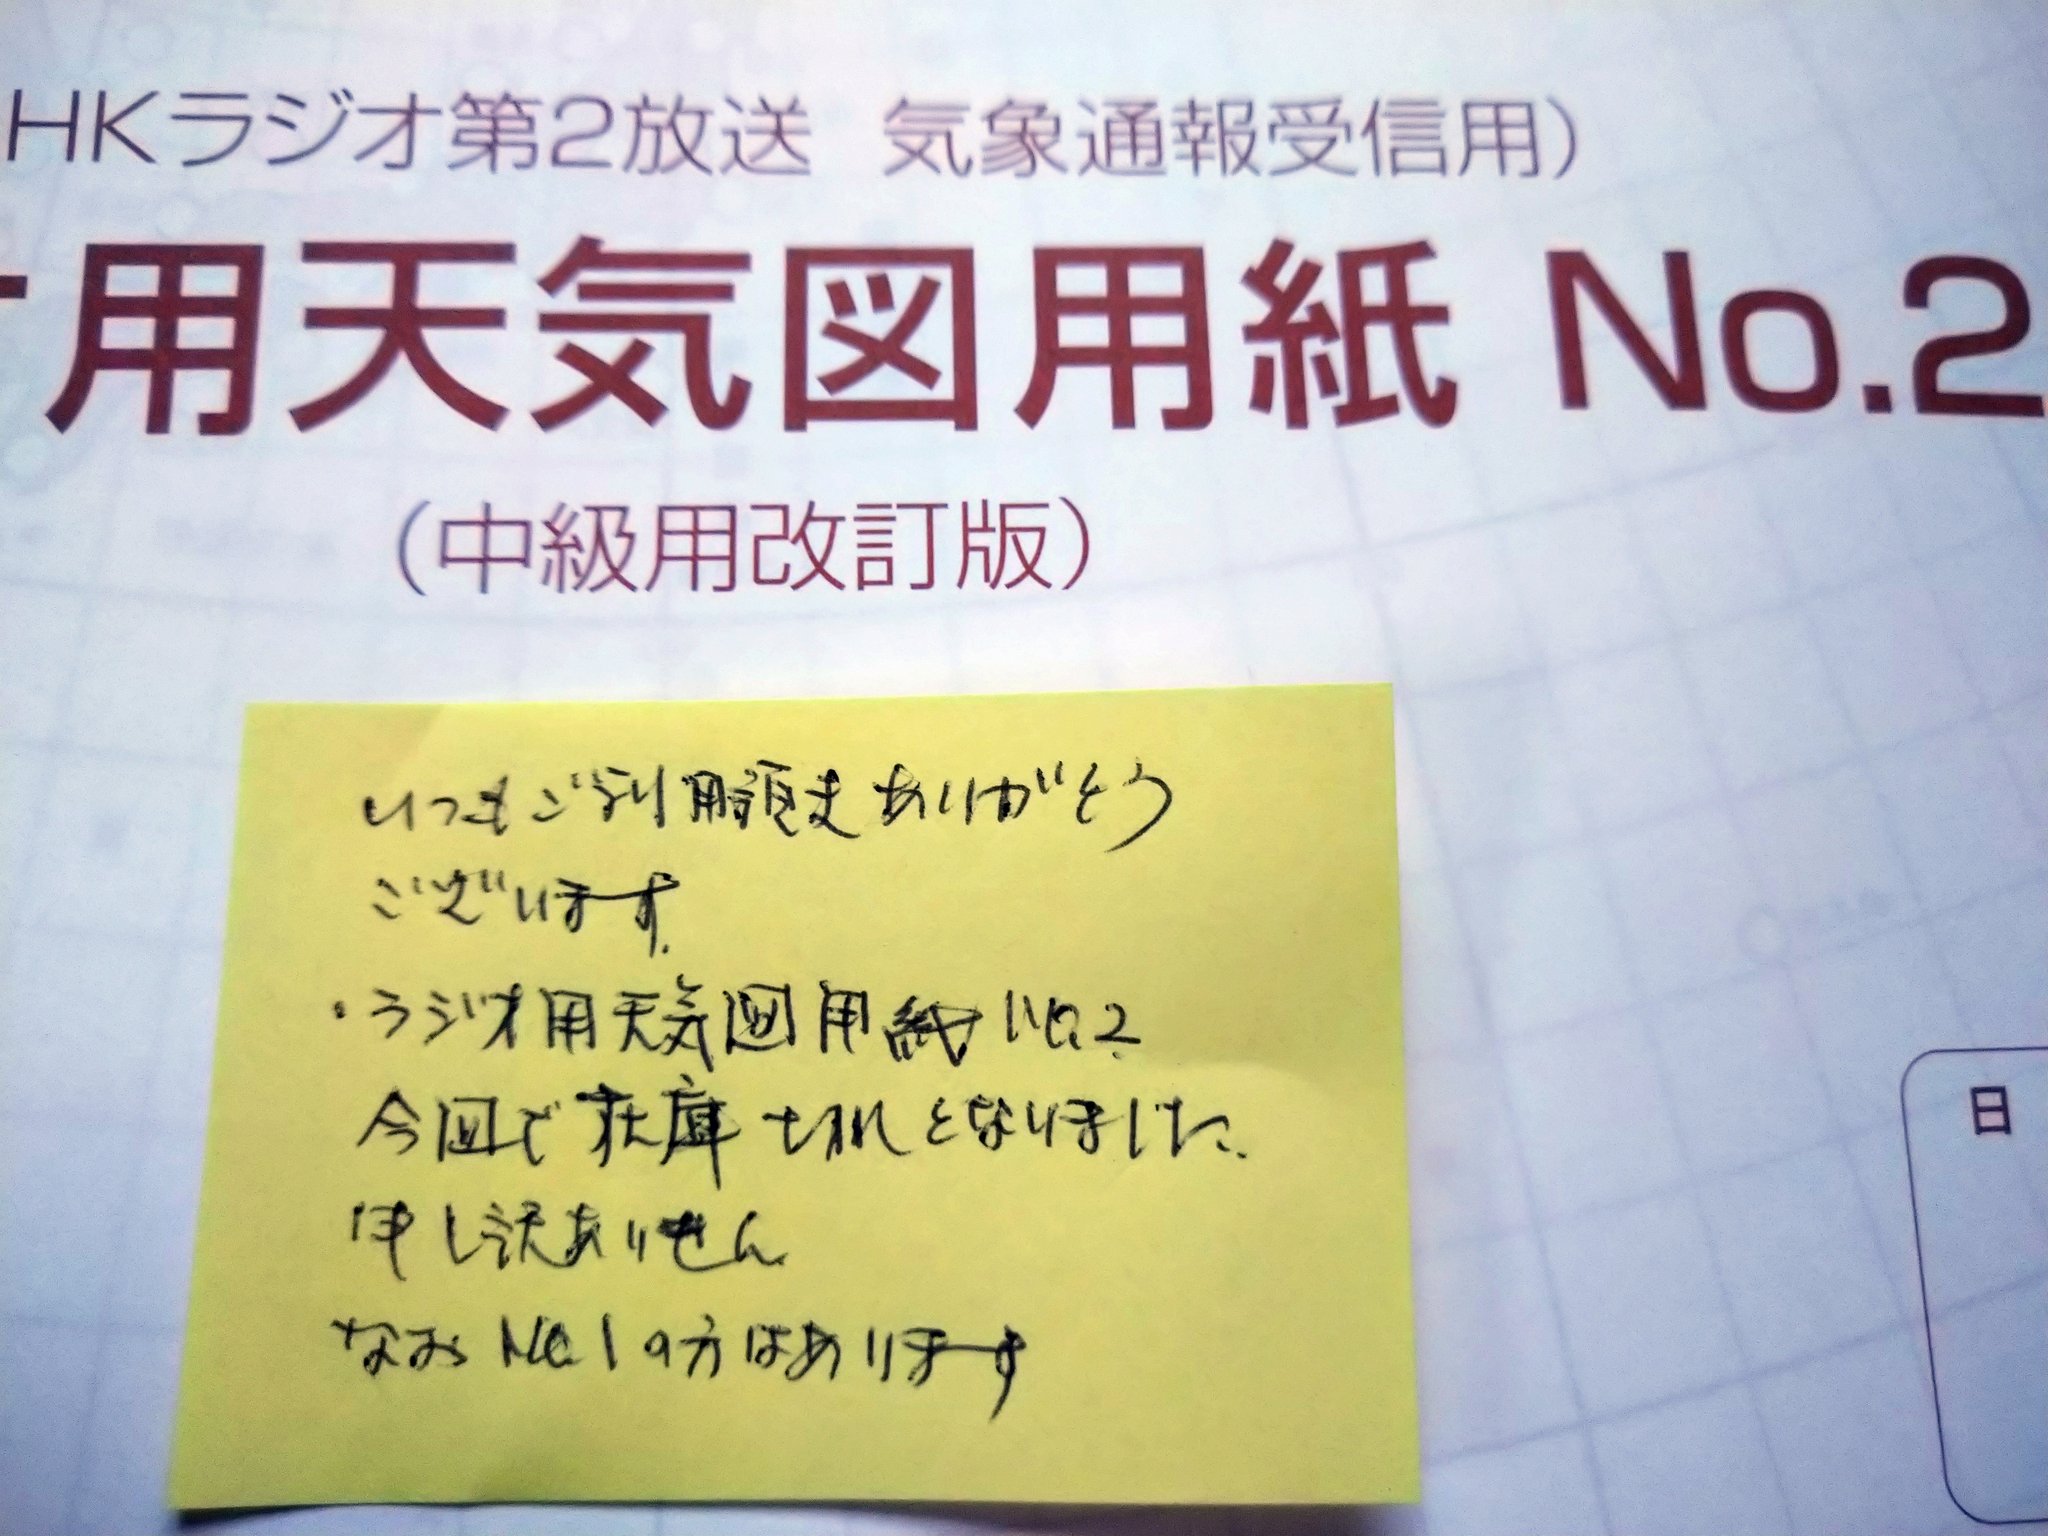 HKラジオ第2放送 気象通報受信用）
用天気図用紙 No.2
（中級用改訂版）
日
いつもご利用頂きありがとう
ございます.
・ラジオ用天気図用紙 No.2
今回で在庫切れとなりました.
申し訳ありません
なお No.1の方はあります